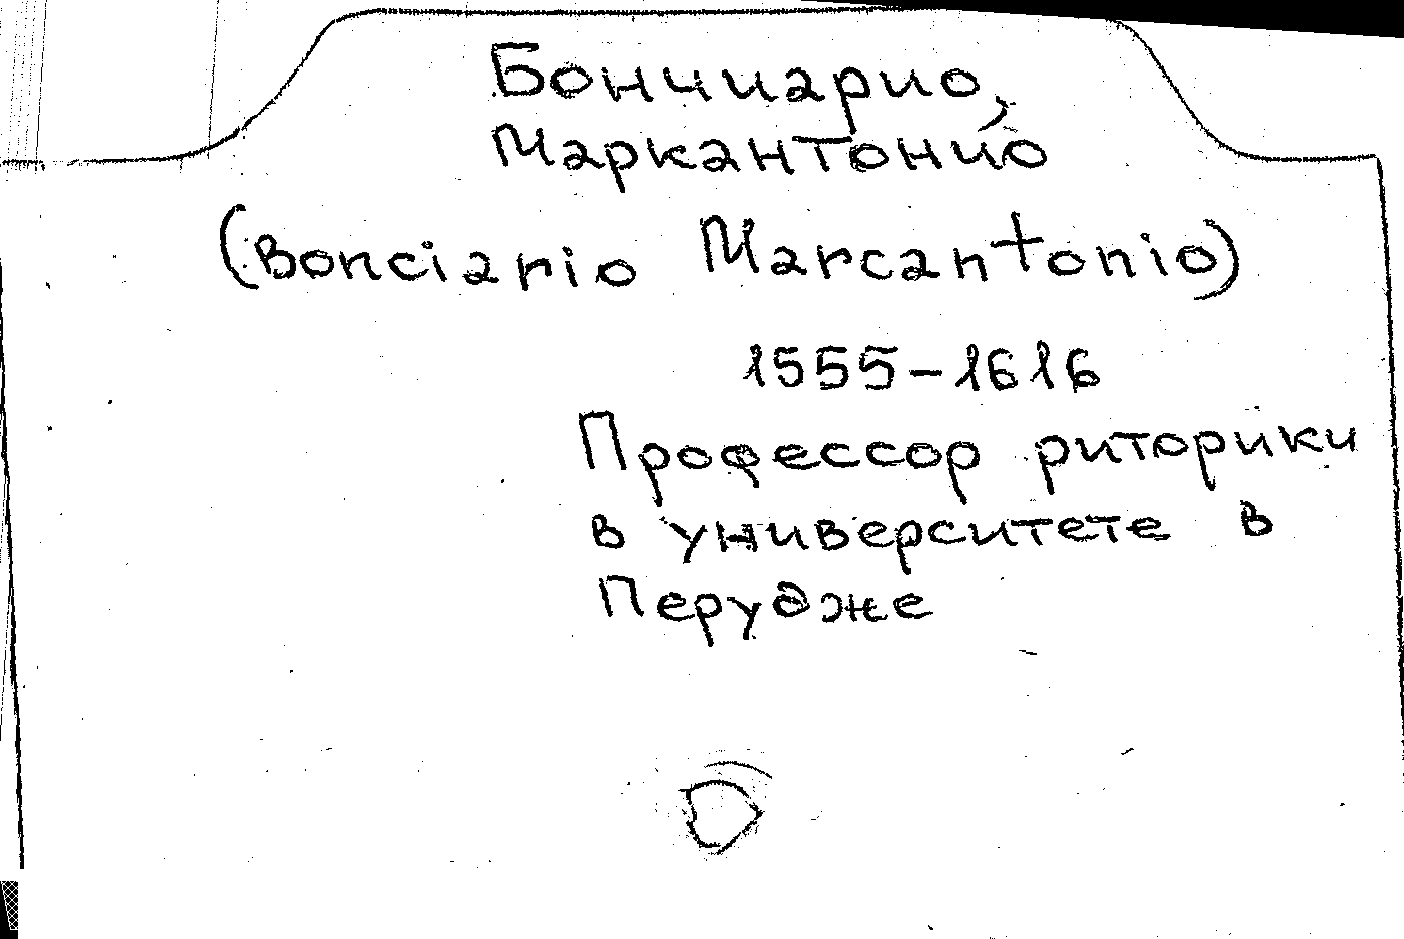 Бончиарио,
Маркантонио
(Bonciario Marcantonio)
1555-1616
Профессор риторики
в университете в
Перудже